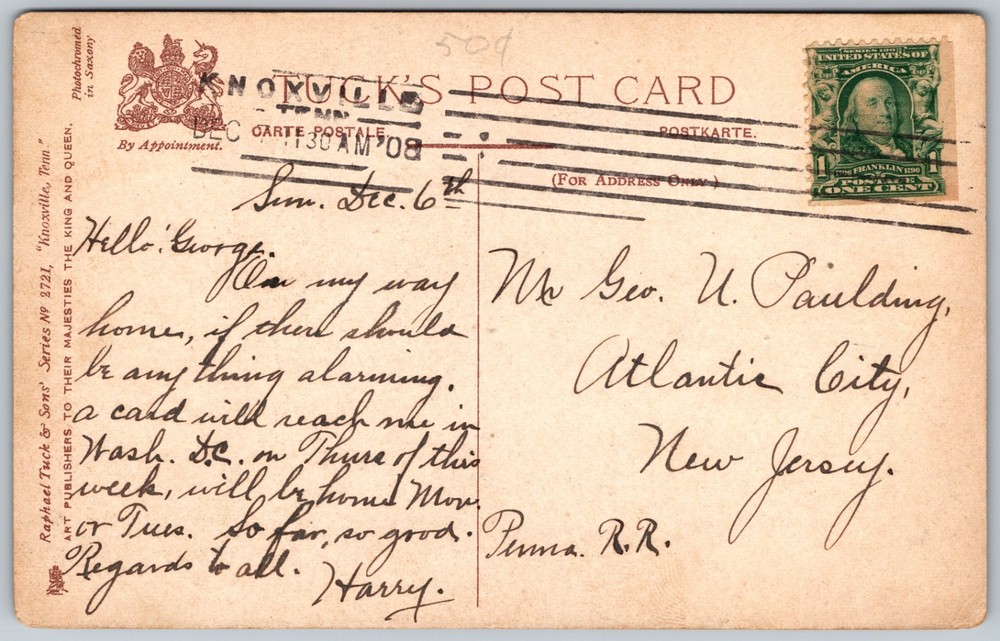 50¢
Photochromed
in Saxony
TUCK'S POST CARD
KNOXVILLE
TENN
DEC 1130AM '08
CARTE POSTALE.
POSTKARTE.
By Appointment.
(FOR ADDRESS ONLY)
SERIES 1902
UNITED STATES OF
AMERICA
1 FRANKLIN 1
POSTAGE
ONE CENT
Raphael Tuck & Sons' Series Nº 2721, "Knoxville, Tenn."
ART PUBLISHERS TO THEIR MAJESTIES THE KING AND QUEEN.
Sun. Dec. 6th
Hello! George.
On my way
home, if there should
be any thing alarming.
a card will reach me in
Wash. D.C. on Thurs of this
week, will be home Mon.
or Tues. So far, so good.
Regards to all.
Harry.
Mr Geo. U. Paulding,
Atlantic City,
New Jersey.
Penna. R.R.